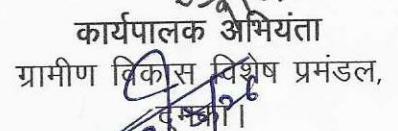 कार्यपालक अभियंता
ग्रामीण विकास विशेष प्रमंडल,
दुमका।